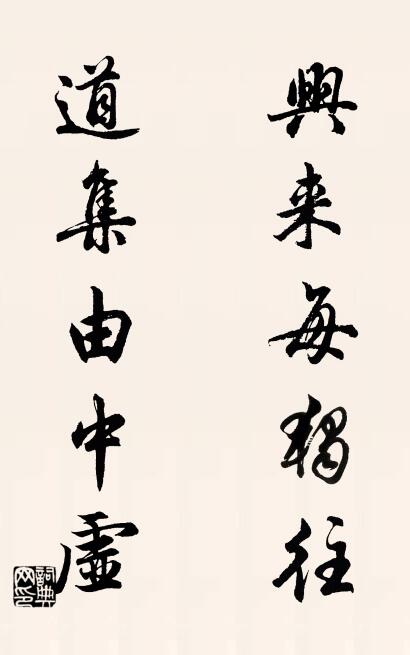 興来每獨往
道集由中虛
詞典網印